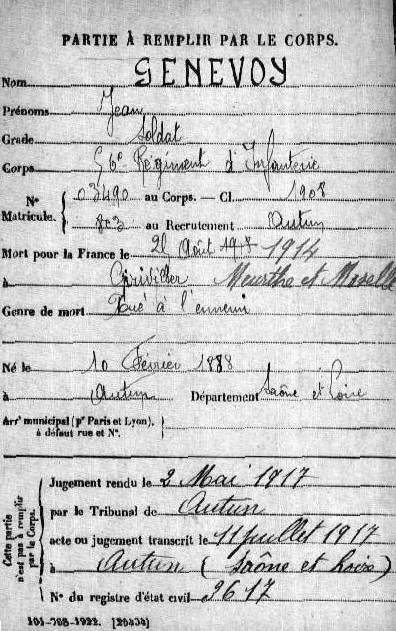 PARTIE À REMPLIR PAR LE CORPS.
Nom GENEVOY
Prénoms Jean
Grade Soldat
Corps 56e Régiment d'Infanterie
N° Matricule. { 03490 au Corps. — Cl. 1908
803 au Recrutement Autun
Mort pour la France le Août 1914
à Meurthe et Moselle
Genre de mort Tué à l'ennemi
Né le 10 Février 1888
à Autun Département Saône et Loire
Arrt municipal (pr Paris et Lyon),
à défaut rue et N°.
Cette partie n'est pas à remplir par le Corps.
Jugement rendu le 2 Mai 1917
par le Tribunal de Autun
acte ou jugement transcrit le 11 juillet 1917
à Autun (Saône et Loire)
N° du registre d'état civil 3617
101-708-1922. [26434]